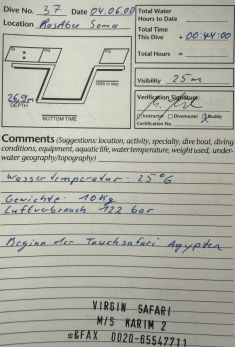 Dive No. 37 Date 04.06.00
Location Rasabu Soma
Total Water
Hours to Date
Total Time
This Dive + 00:44:00
Total Hours =
Visibility 25m
26,9m
DEPTH
BOTTOM TIME
Verification Signature:
Instructor Divemaster Buddy
Certification No.
Comments (Suggestions: location, activity, specialty, dive boat, diving
conditions, equipment, aquatic life, water temperature, weight used, under-
water geography/topography)
Wassertemperatur: 25°C
Gewichte: 10Kg
Luftverbrauch 122 bar
Beginn der Tauchsafari Ägypten
VIRGIN SAFARI
M/S KARIM 2
☎&FAX 0020-65547711